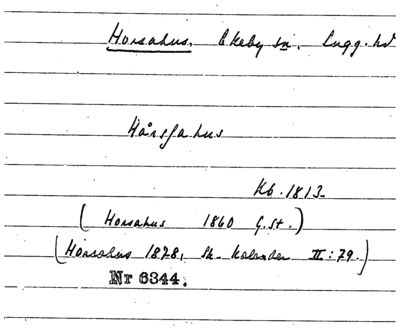 Horsahus. Ekeby sn. Lugg. hd
Hårsahus
Kb. 1813.
(Horsahus 1860 G.St.)
(Horsahus 1878, Sk. Kalender II:79.)
Nr 6344.